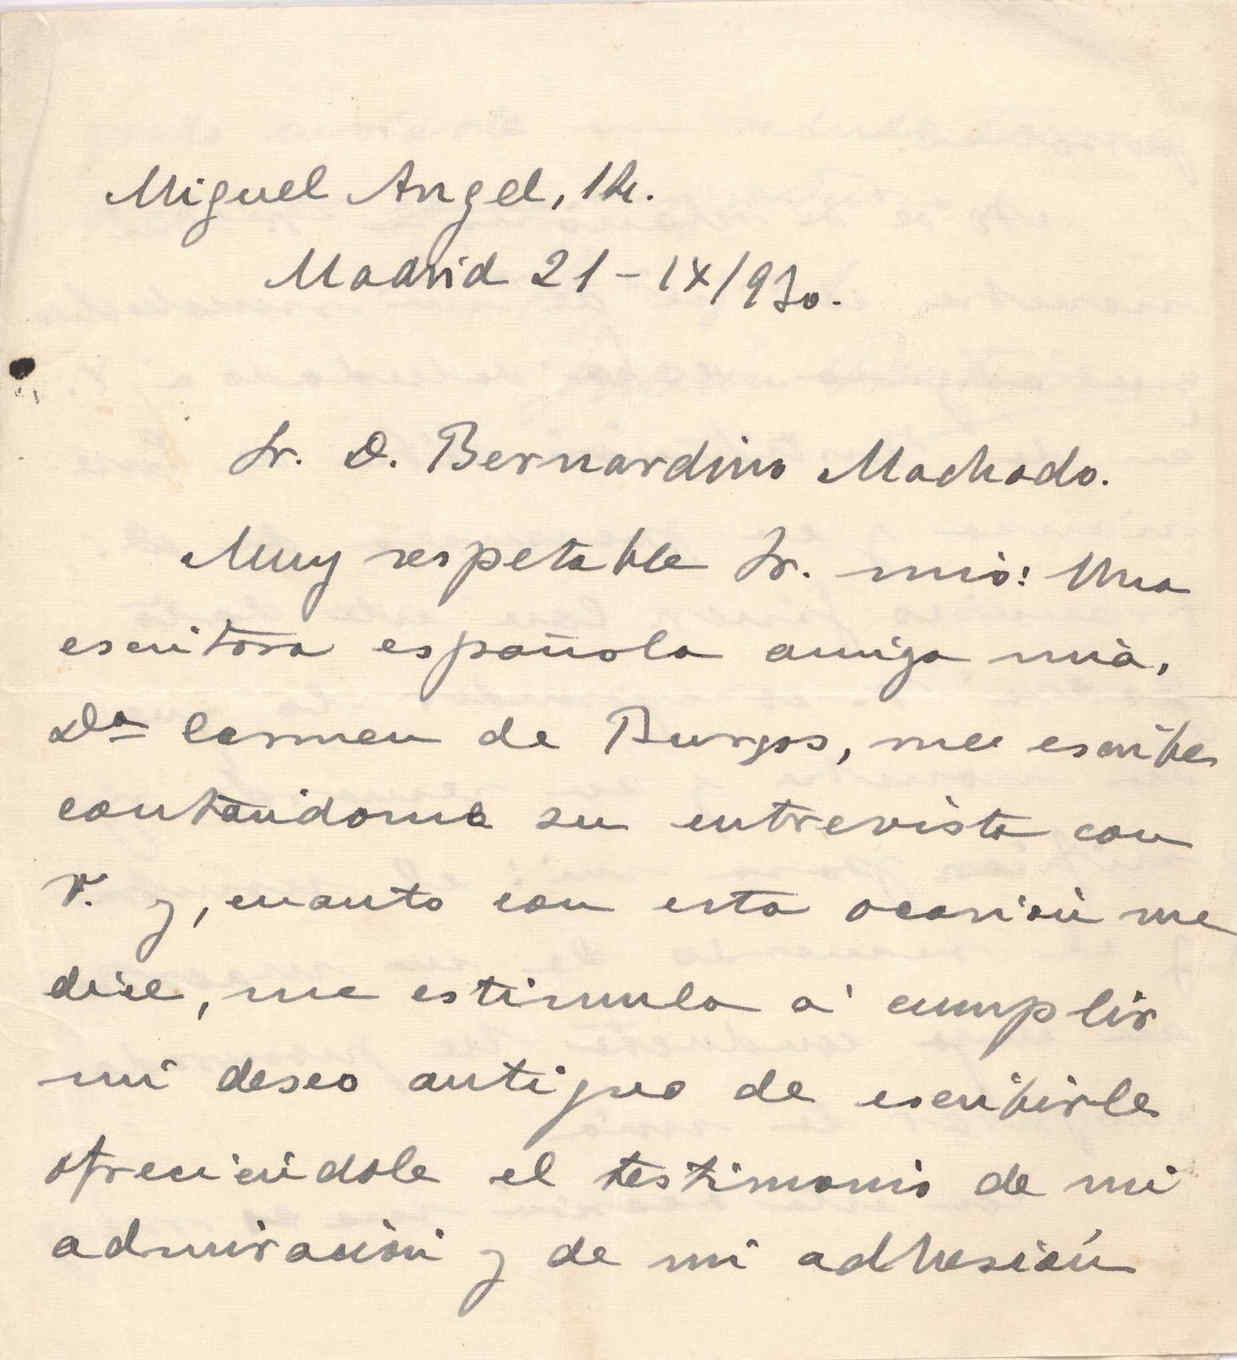 Miguel Angel, 12.
Madrid 21-IX/930.
Sr. D. Bernardino Machado.
Muy respetable Sr. mío: Una
escritora española amiga mía,
Dª Carmen de Burgos, me escribe
contándome su entrevista con
V. y, cuanto con esta ocasión me
dice, me estimula á cumplir
mi deseo antiguo de escribirle
ofreciéndole el testimonio de mi
admiración y de mi adhesión